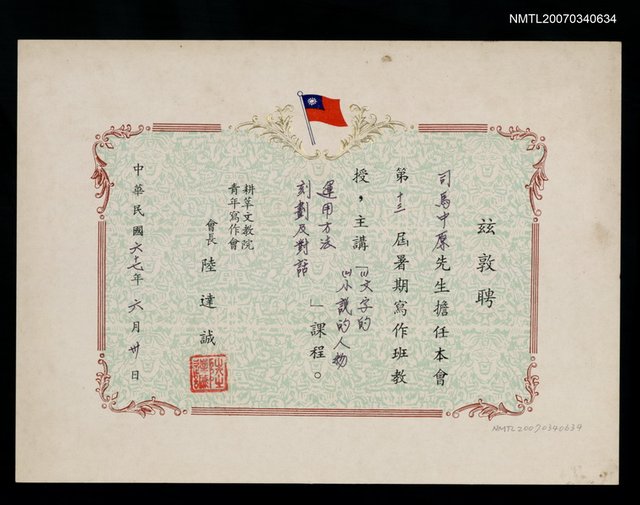 NMTL20070340634
茲敦聘
司馬中原先生擔任本會
第十三屆暑期寫作班教
授，主講「(1)文字的
運用方法
(2)小說的人物
刻劃及對話
」課程。
耕莘文教院
青年寫作會
會長 陸達誠
中華民國六十七年六月卅日
NMTL20070340634